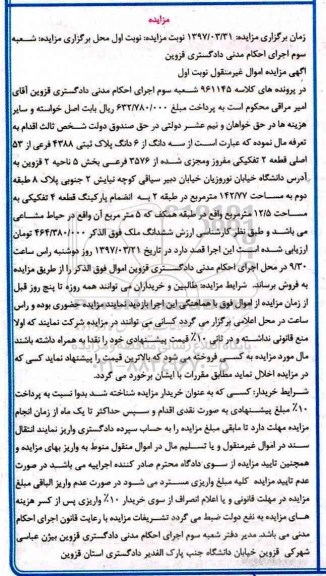 مزایده
زمان برگزاری مزایده: ۱۳۹۷/۰۳/۳۱ نوبت مزایده: نوبت اول محل برگزاری مزایده: شعبه
سوم اجرای احکام مدنی دادگستری قزوین
آگهی مزایده اموال غیرمنقول نوبت اول
در پرونده های کلاسه ۹۶۱۱۴۵ شعبه سوم اجرای احکام مدنی دادگستری قزوین آقای
امیر مراقی محکوم است به پرداخت مبلغ ۶۳۲/۷۸۰/۰۰۰ ریال بابت اصل خواسته و سایر
هزینه ها در حق خواهان و نیم عشر دولتی در حق صندوق دولت شخص ثالث اقدام به
تعرفه مال نموده که عبارت است از سه دانگ از ۶ دانگ پلاک ثبتی ۴۳۸۸ فرعی از ۵۳
اصلی قطعه ۲ تفکیکی مفروز ومجزی شده از ۳۵۷۶ فرعی بخش ۵ ناحیه ۲ قزوین به
آدرس دانشگاه خیابان نوروزیان خیابان دبیر سیاقی کوچه نیایش ۲ جنوبی پلاک ۸ طبقه
دوم به مساحت ۱۴۲/۷۷ مترمربع در طبقه ۲ به انضمام پارکینگ قطعه ۴ تفکیکی به
مساحت ۱۲/۵ مترمربع واقع در طبقه همکف که ۵ متر مربع آن واقع در حیاط مشاعی
می باشد و طبق نظر کارشناسی ارزش ششدانگ ملک فوق الذکر ۴۶۴/۳۸۰/۰۰۰ تومان
ارزیابی شده است این اجرا قصد دارد در تاریخ ۱۳۹۷/۰۳/۲۱ روز دوشنبه راس ساعت
۹/۳۰ در محل اجرای احکام مدنی دادگستری قزوین اموال فوق الذکر را از طریق مزایده
به فروش برساند. شرایط مزایده: طالبین و خریداران می توانند همه روزه تا پنج روز قبل
از زمان مزایده از اموال فوق با هماهنگی این اجرا بازدید نمایند مزایده حضوری بوده و راس
ساعت در محل اعلامی برگزار می گردد کسانی می توانند در مزایده شرکت نمایند که اولا
منع قانونی نداشته و در ثانی ۱۰٪ قیمت پیشنهادی خود را نقدا به همراه داشته باشند
مال مورد مزایده به کسی فروخته می شود که بالاترین قیمت را پیشنهاد نماید کسی که
در مزایده اخلال نماید مطابق مقررات با ایشان برخورد می گردد.
شرایط خریدار: کسی که به عنوان خریدار مزایده شناخته شد بدوا نسبت به پرداخت
۱۰٪ مبلغ پیشنهادی به صورت نقدی اقدام و سپس حداکثر تا یک ماه از زمان انجام
مزایده مهلت دارد تا مابقی مبلغ مزایده را به حساب سپرده دادگستری واریز نمایند انتقال
سند در اموال غیرمنقول و یا تسلیم مال در اموال منقول منوط به واریز بهای مزایده و
همچنین تایید مزایده از سوی دادگاه محترم صادر کننده اجراییه می باشد در صورت
عدم تایید مزایده کلیه مبلغ واریزی مسترد می شود در صورت عدم واریز الباقی مبلغ
مزایده در مهلت قانونی و یا اعلام انصراف از سوی خریدار ۱۰٪ واریزی پس از کسر هزینه
های مزایده به نفع دولت ضبط می گردد تشریفات مزایده با رعایت قانون اجرای احکام
مدنی می باشد. مدیر دفتر شعبه سوم اجرای احکام مدنی دادگستری قزوین بیژن عباسی
شهرکی قزوین خیابان دانشگاه جنب پارک الغدیر دادگستری استان قزوین